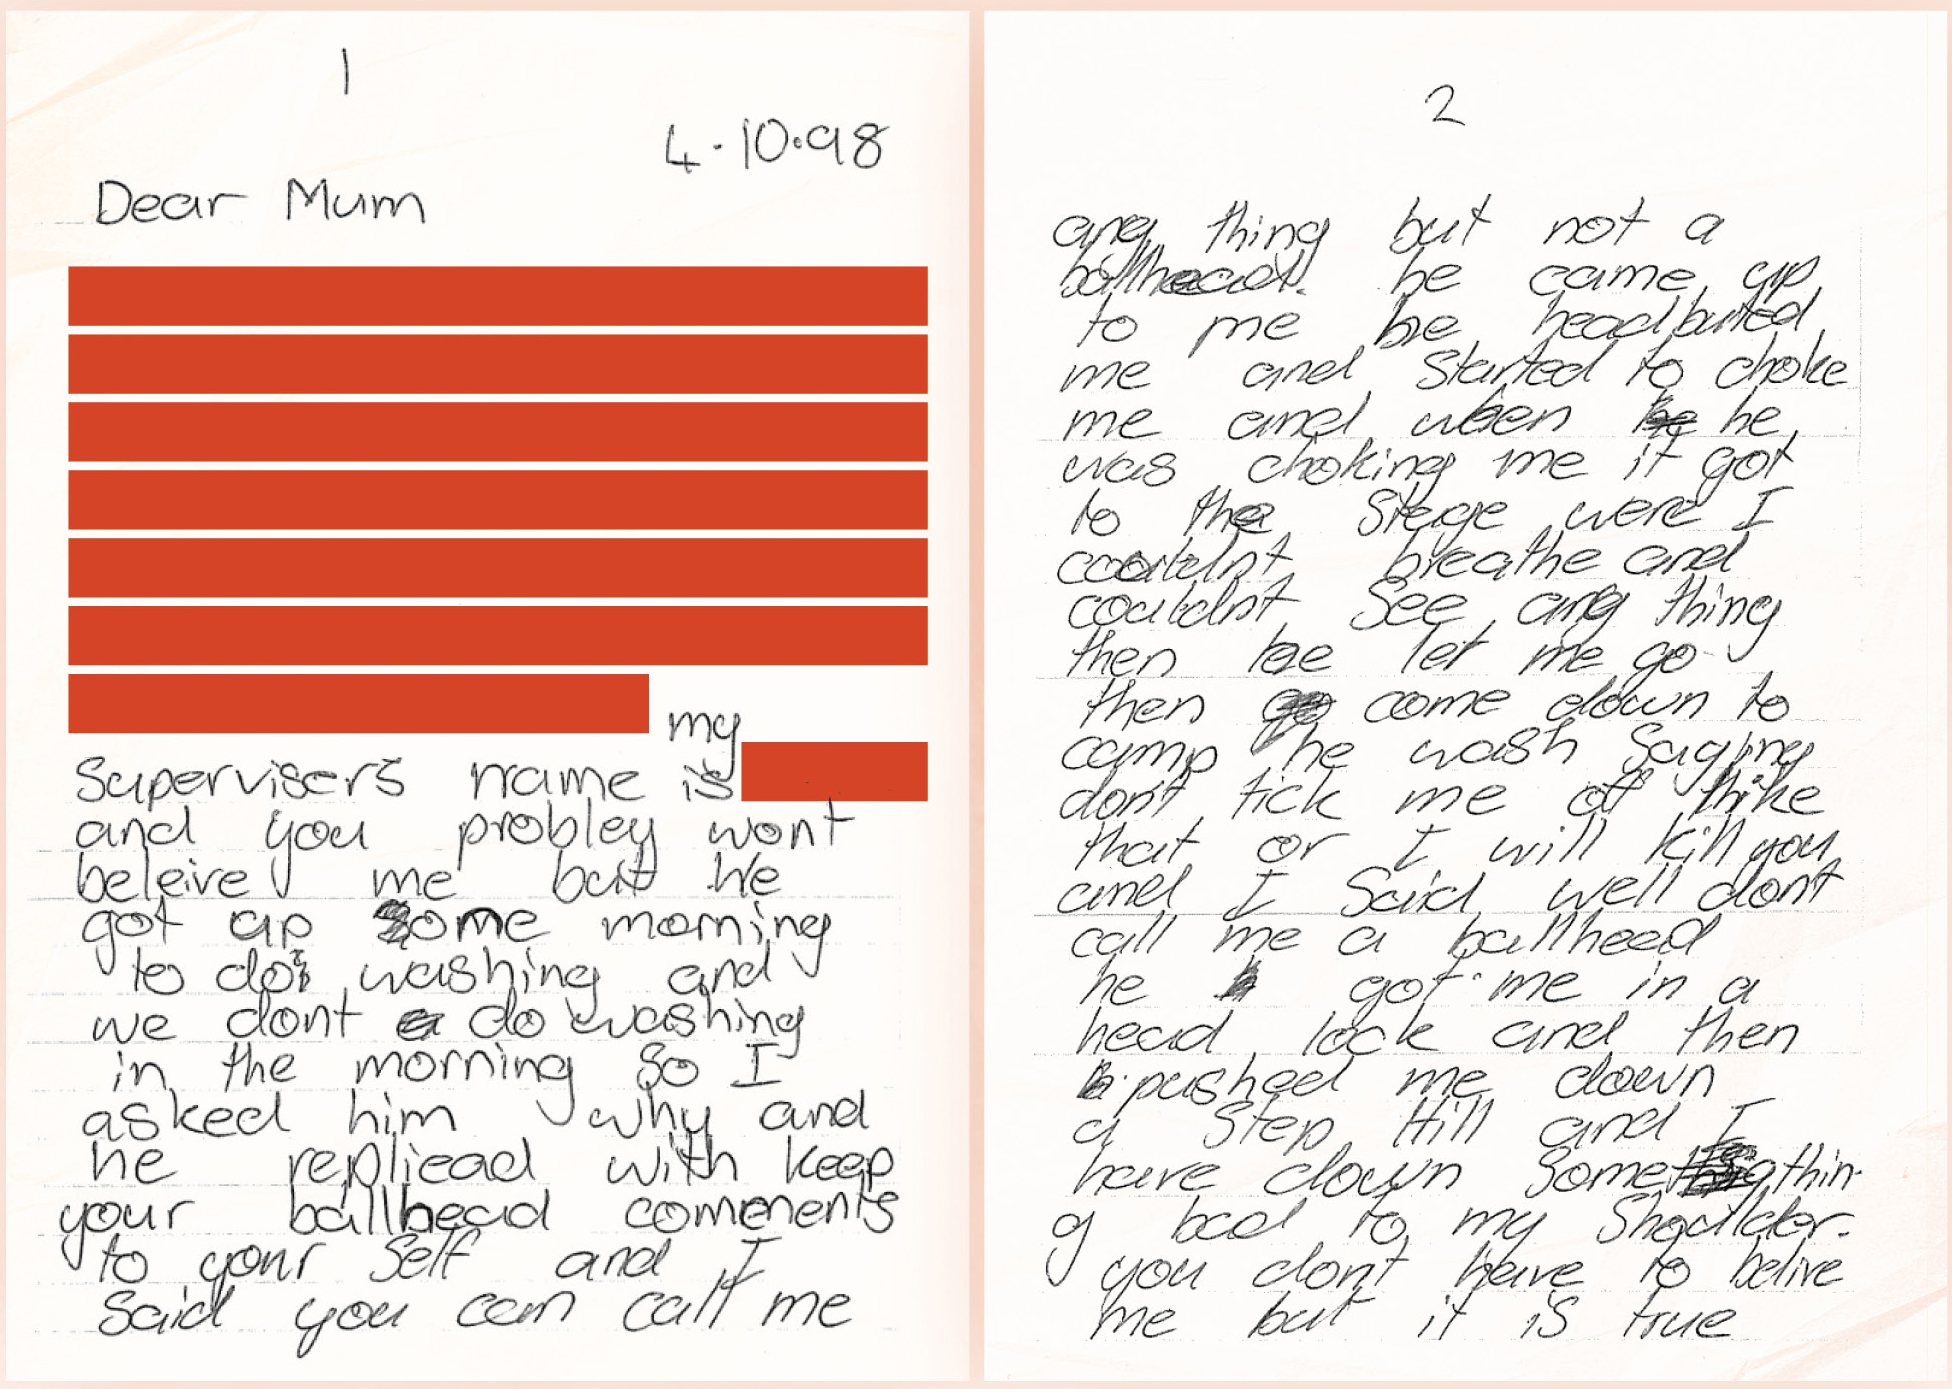 1
4.10.98
Dear Mum
my
Supervisers name is
and you probley wont
beleive me but he
got up some morning
to do washing and
we dont do washing
in the morning so I
asked him why and
he repliead with keep
your ballhead comenents
to your Self and I
Said you can call me
2
any thing but not a
ballhead. he came up
to me he headbuted
me and Started to choke
me and when he
was choking me it got
to the Stage were I
couldnt breathe and
couldnt See any thing
then he let me go
then come down to
camp he wash Saying
don't tick me of
that or I will kill you
and I Said well dont
call me a ballheed
he got me in a
head lock and then
pushed me down
a Step Hill and I
have down Somethin
g bad to my Shoulder.
you dont have to belive
me but it is true